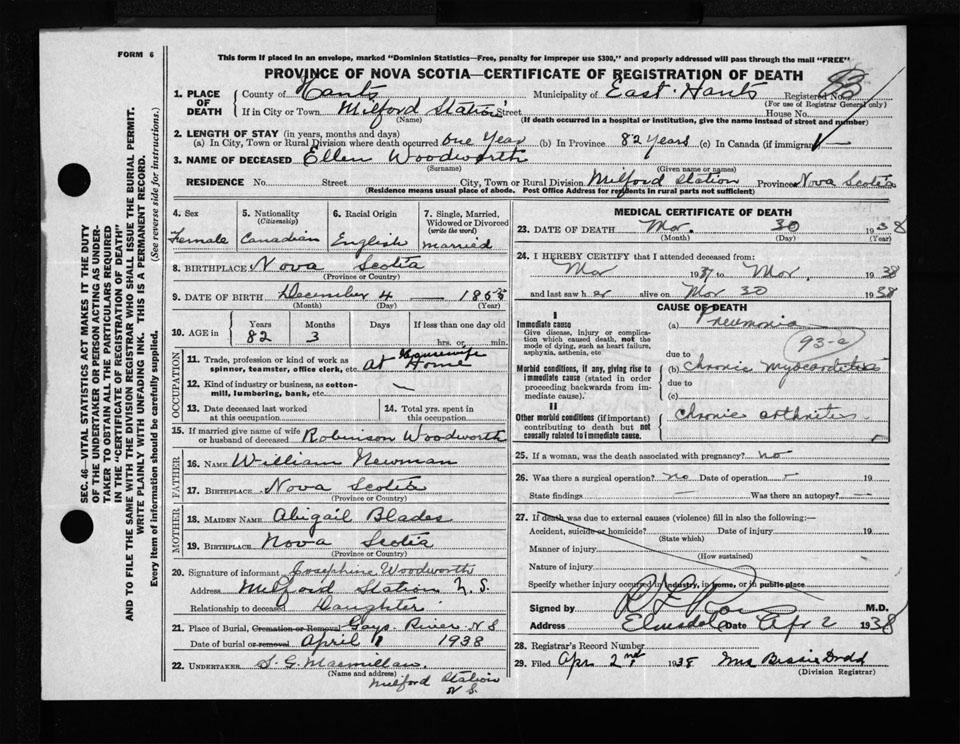 FORM 6
This form if placed in an envelope, marked "Dominion Statistics—Free, penalty for improper use $300," and properly addressed will pass through the mail "FREE"
PROVINCE OF NOVA SCOTIA—CERTIFICATE OF REGISTRATION OF DEATH
1. PLACE OF DEATH County of Hants Municipality of East Hants Registered No.
(For use of Registrar General only)
If in City or Town Milford Station Street House No.
(Name) (If death occurred in a hospital or institution, give the name instead of street and number)
2. LENGTH OF STAY (in years, months and days)
(a) In City, Town or Rural Division where death occurred One Year (b) In Province 82 Years (c) In Canada (if immigrant)
3. NAME OF DECEASED Ellen Woodworth
(Surname) (Given name or names)
RESIDENCE No. Street City, Town or Rural Division Milford Station Province Nova Scotia
(Residence means usual place of abode. Post Office Address for residents in rural parts not sufficient)
SEC. 46—VITAL STATISTICS ACT MAKES IT THE DUTY
OF THE UNDERTAKER OR PERSON ACTING AS UNDER-
TAKER TO OBTAIN ALL THE PARTICULARS REQUIRED
IN THE "CERTIFICATE OF REGISTRATION OF DEATH"
AND TO FILE THE SAME WITH THE DIVISION REGISTRAR WHO SHALL ISSUE THE BURIAL PERMIT.
WRITE PLAINLY WITH UNFADING INK. THIS IS A PERMANENT RECORD.
Every item of information should be carefully supplied. (See reverse side for instructions.)
4. Sex 5. Nationality (Citizenship) 6. Racial Origin 7. Single, Married, Widowed or Divorced (write the word)
Female Canadian English Married
8. BIRTHPLACE Nova Scotia
(Province or Country)
9. DATE OF BIRTH December 4 1855
(Month) (Day) (Year)
10. AGE in Years Months Days If less than one day old
82 3 hrs. or min.
OCCUPATION
11. Trade, profession or kind of work as spinner, teamster, office clerk, etc. Housewife At Home
12. Kind of industry or business, as cotton-mill, lumbering, bank, etc. —
13. Date deceased last worked at this occupation 14. Total yrs. spent in this occupation
15. If married give name of wife or husband of deceased Robinson Woodworth
FATHER
16. NAME William Newman
17. BIRTHPLACE Nova Scotia
(Province or Country)
MOTHER
18. MAIDEN NAME Abigail Blades
19. BIRTHPLACE Nova Scotia
(Province or Country)
20. Signature of informant Josephine Woodworth
Address Milford Station N.S.
Relationship to deceased Daughter
21. Place of Burial, Cremation or Removal Gays River N S
Date of burial or removal April 1 1938
22. UNDERTAKER S. G. Macmillan
(Name and address)
Milford Station
N S.
MEDICAL CERTIFICATE OF DEATH
23. DATE OF DEATH Mar. 30 1938
(Month) (Day) (Year)
24. I HEREBY CERTIFY that I attended deceased from:
Mar 1937 to Mar. 1938
and last saw her alive on Mar 30 1938
CAUSE OF DEATH
I
Immediate cause
Give disease, injury or complication which caused death, not the mode of dying, such as heart failure, asphyxia, asthenia, etc
(a) Pneumonia
93-c
due to
Morbid conditions, if any, giving rise to immediate cause (stated in order proceeding backwards from immediate cause).
(b) Chronic myocarditis
due to
(c)
II
Other morbid conditions (if important) contributing to death but not causally related to immediate cause.
Chronic arthritis
25. If a woman, was the death associated with pregnancy? no
26. Was there a surgical operation? no Date of operation 19
State findings — Was there an autopsy? —
27. If death was due to external causes (violence) fill in also the following:—
Accident, suicide or homicide? Date of injury 19
(State which)
Manner of injury
(How sustained)
Nature of injury
Specify whether injury occurred in industry, in home, or in public place
Signed by M.D.
Address Elmsdale Date Apr 2 1938
28. Registrar's Record Number
29. Filed Apr 2nd 1938 Mrs Bessie Dodd
(Division Registrar)